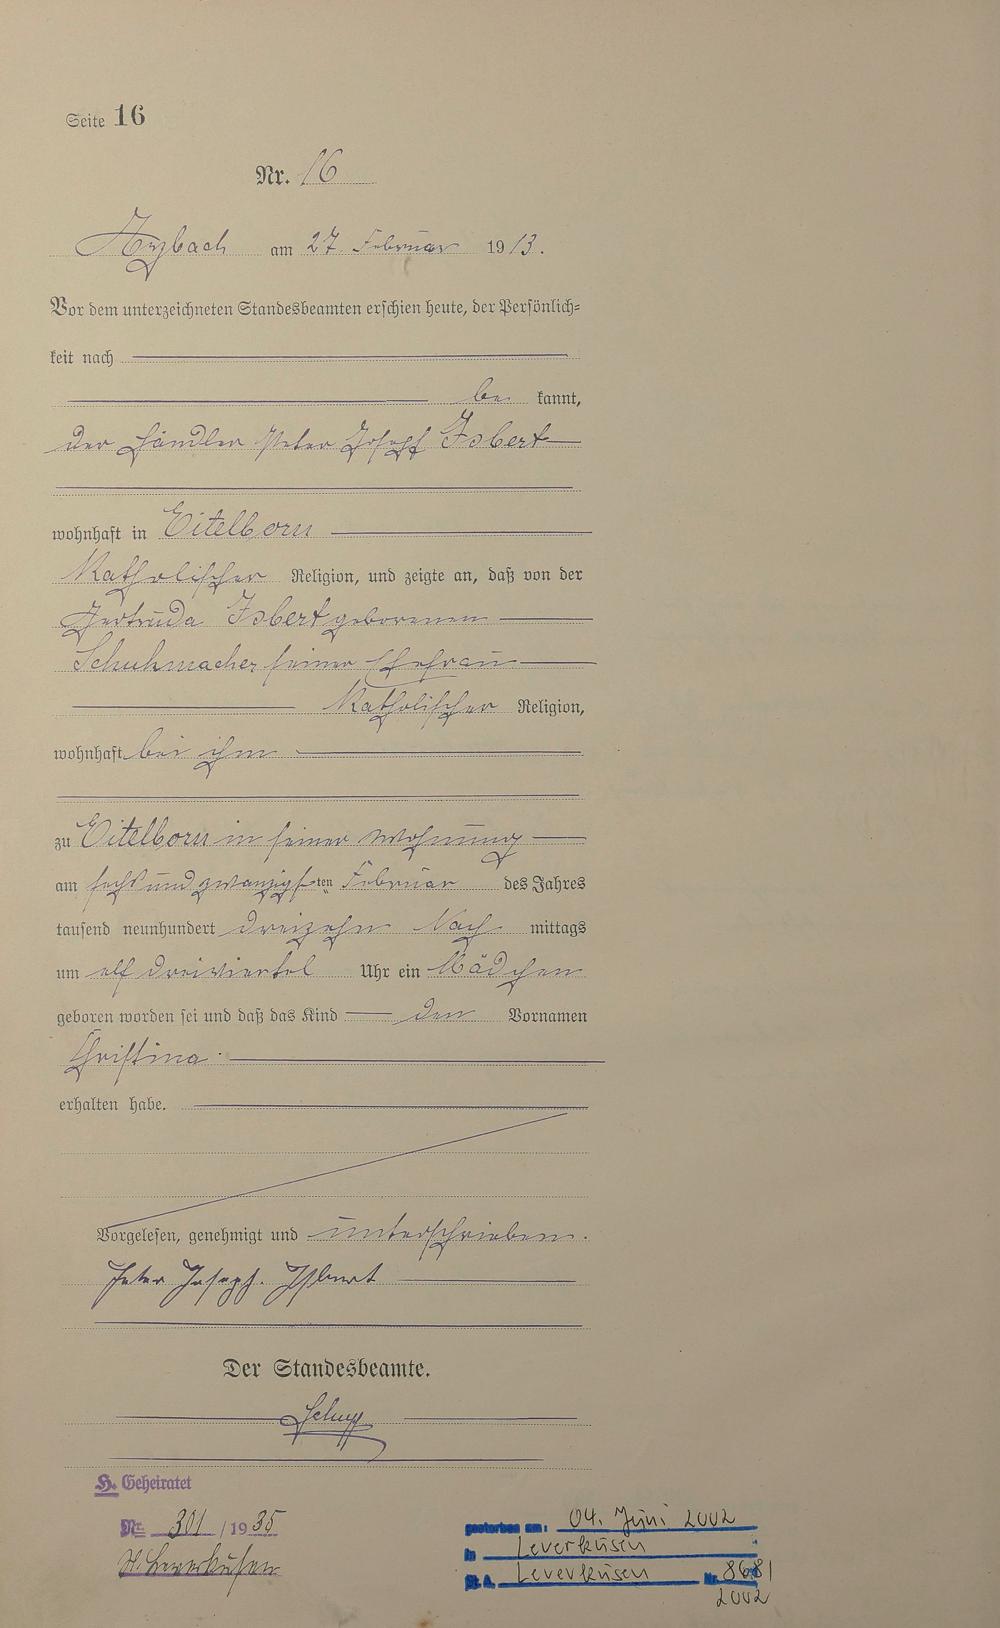 Seite 16
Nr. 16
Arzbach am 27. Februar 1913.
Vor dem unterzeichneten Standesbeamten erschien heute, der Persönlich-
keit nach
be kannt,
der Händler Peter Joseph Isbert
wohnhaft in Eitelborn
Katholischer Religion, und zeigte an, daß von der
Gertruda Isbert geborenen
Schuhmacher seiner Ehefrau
Katholischer Religion,
wohnhaft bei ihm
zu Eitelborn in seiner Wohnung
am sechs und zwanzigsten Februar des Jahres
tausend neunhundert dreizehn Nach mittags
um elf dreiviertel Uhr ein Mädchen
geboren worden sei und daß das Kind den Vornamen
Christina
erhalten habe.
Vorgelesen, genehmigt und unterschrieben.
Peter Joseph. Isbert
Der Standesbeamte.
H. Geheiratet
Nr. 301 / 1935
St. Leverkusen
gestorben am: 04. Juni 2002
in Leverkusen
St.A. Leverkusen Nr.
2002